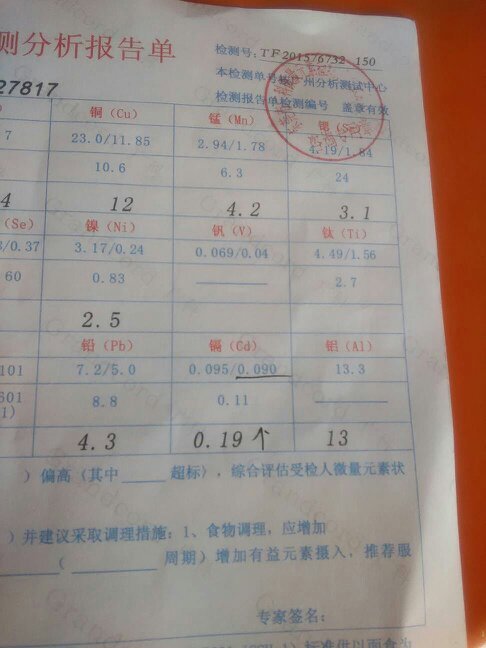 测分析报告单
检测号: TF2015/6732 150
27817
本检测单号按广州分析测试中心
检测报告单检测编号 盖章有效
铜 (Cu) 锰 (Mn)
7 23.0/11.85 2.94/1.78 4.19/1.84
10.6 6.3 24
4 12 4.2 3.1
(Se) 镍 (Ni) 钒 (V) 钛 (Ti)
/0.37 3.17/0.24 0.069/0.04 4.49/1.56
60 0.83 2.7
2.5
铅 (Pb) 镉 (Cd) 铝 (Al)
101 7.2/5.0 0.095/0.090 13.3
601 8.8 0.11
1)
4.3 0.19个 13
)偏高(其中 超标),综合评估受检人微量元素状
)并建议采取调理措施:1、食物调理,应增加
( 周期)增加有益元素摄入,推荐服
专家签名: